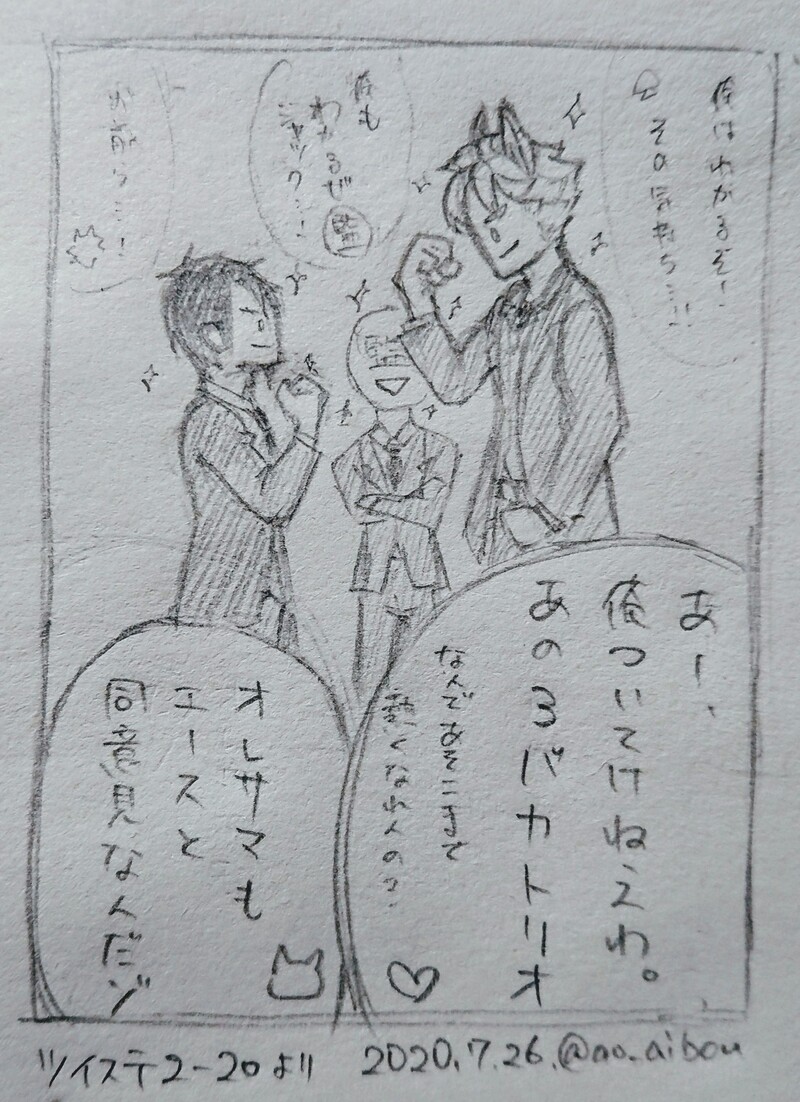 俺はわかるぞ!
その気持ち…!!
俺も
わかるぜ
ジャック…!
監
お前ら…!
監
あー、
俺ついてけねえわ。
あの3バカトリオ
なんであそこまで
熱くなれんの?
オレサマも
エースと
同意見なんだゾ
ツイステ2-20より 2020.7.26.@ao.aibou